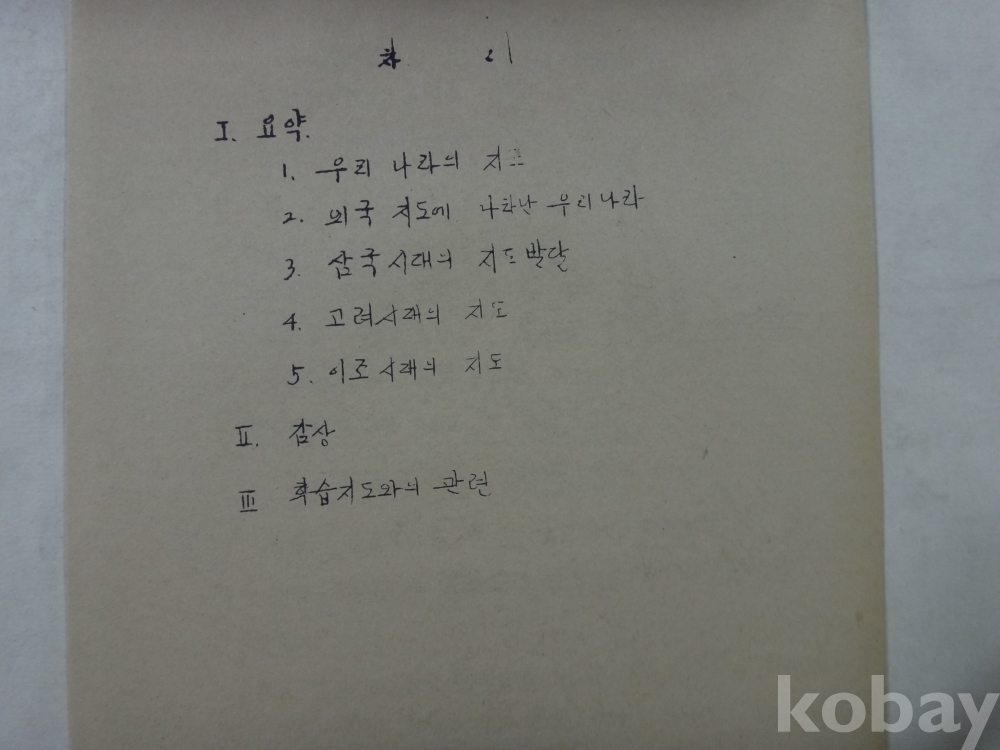 차 례
I. 요약.
1. 우리 나라의 지도
2. 외국 지도에 나타난 우리나라
3. 삼국시대의 지도발달
4. 고려시대의 지도
5. 이조시대의 지도
II. 감상
III 학습지도와의 관련
kobay